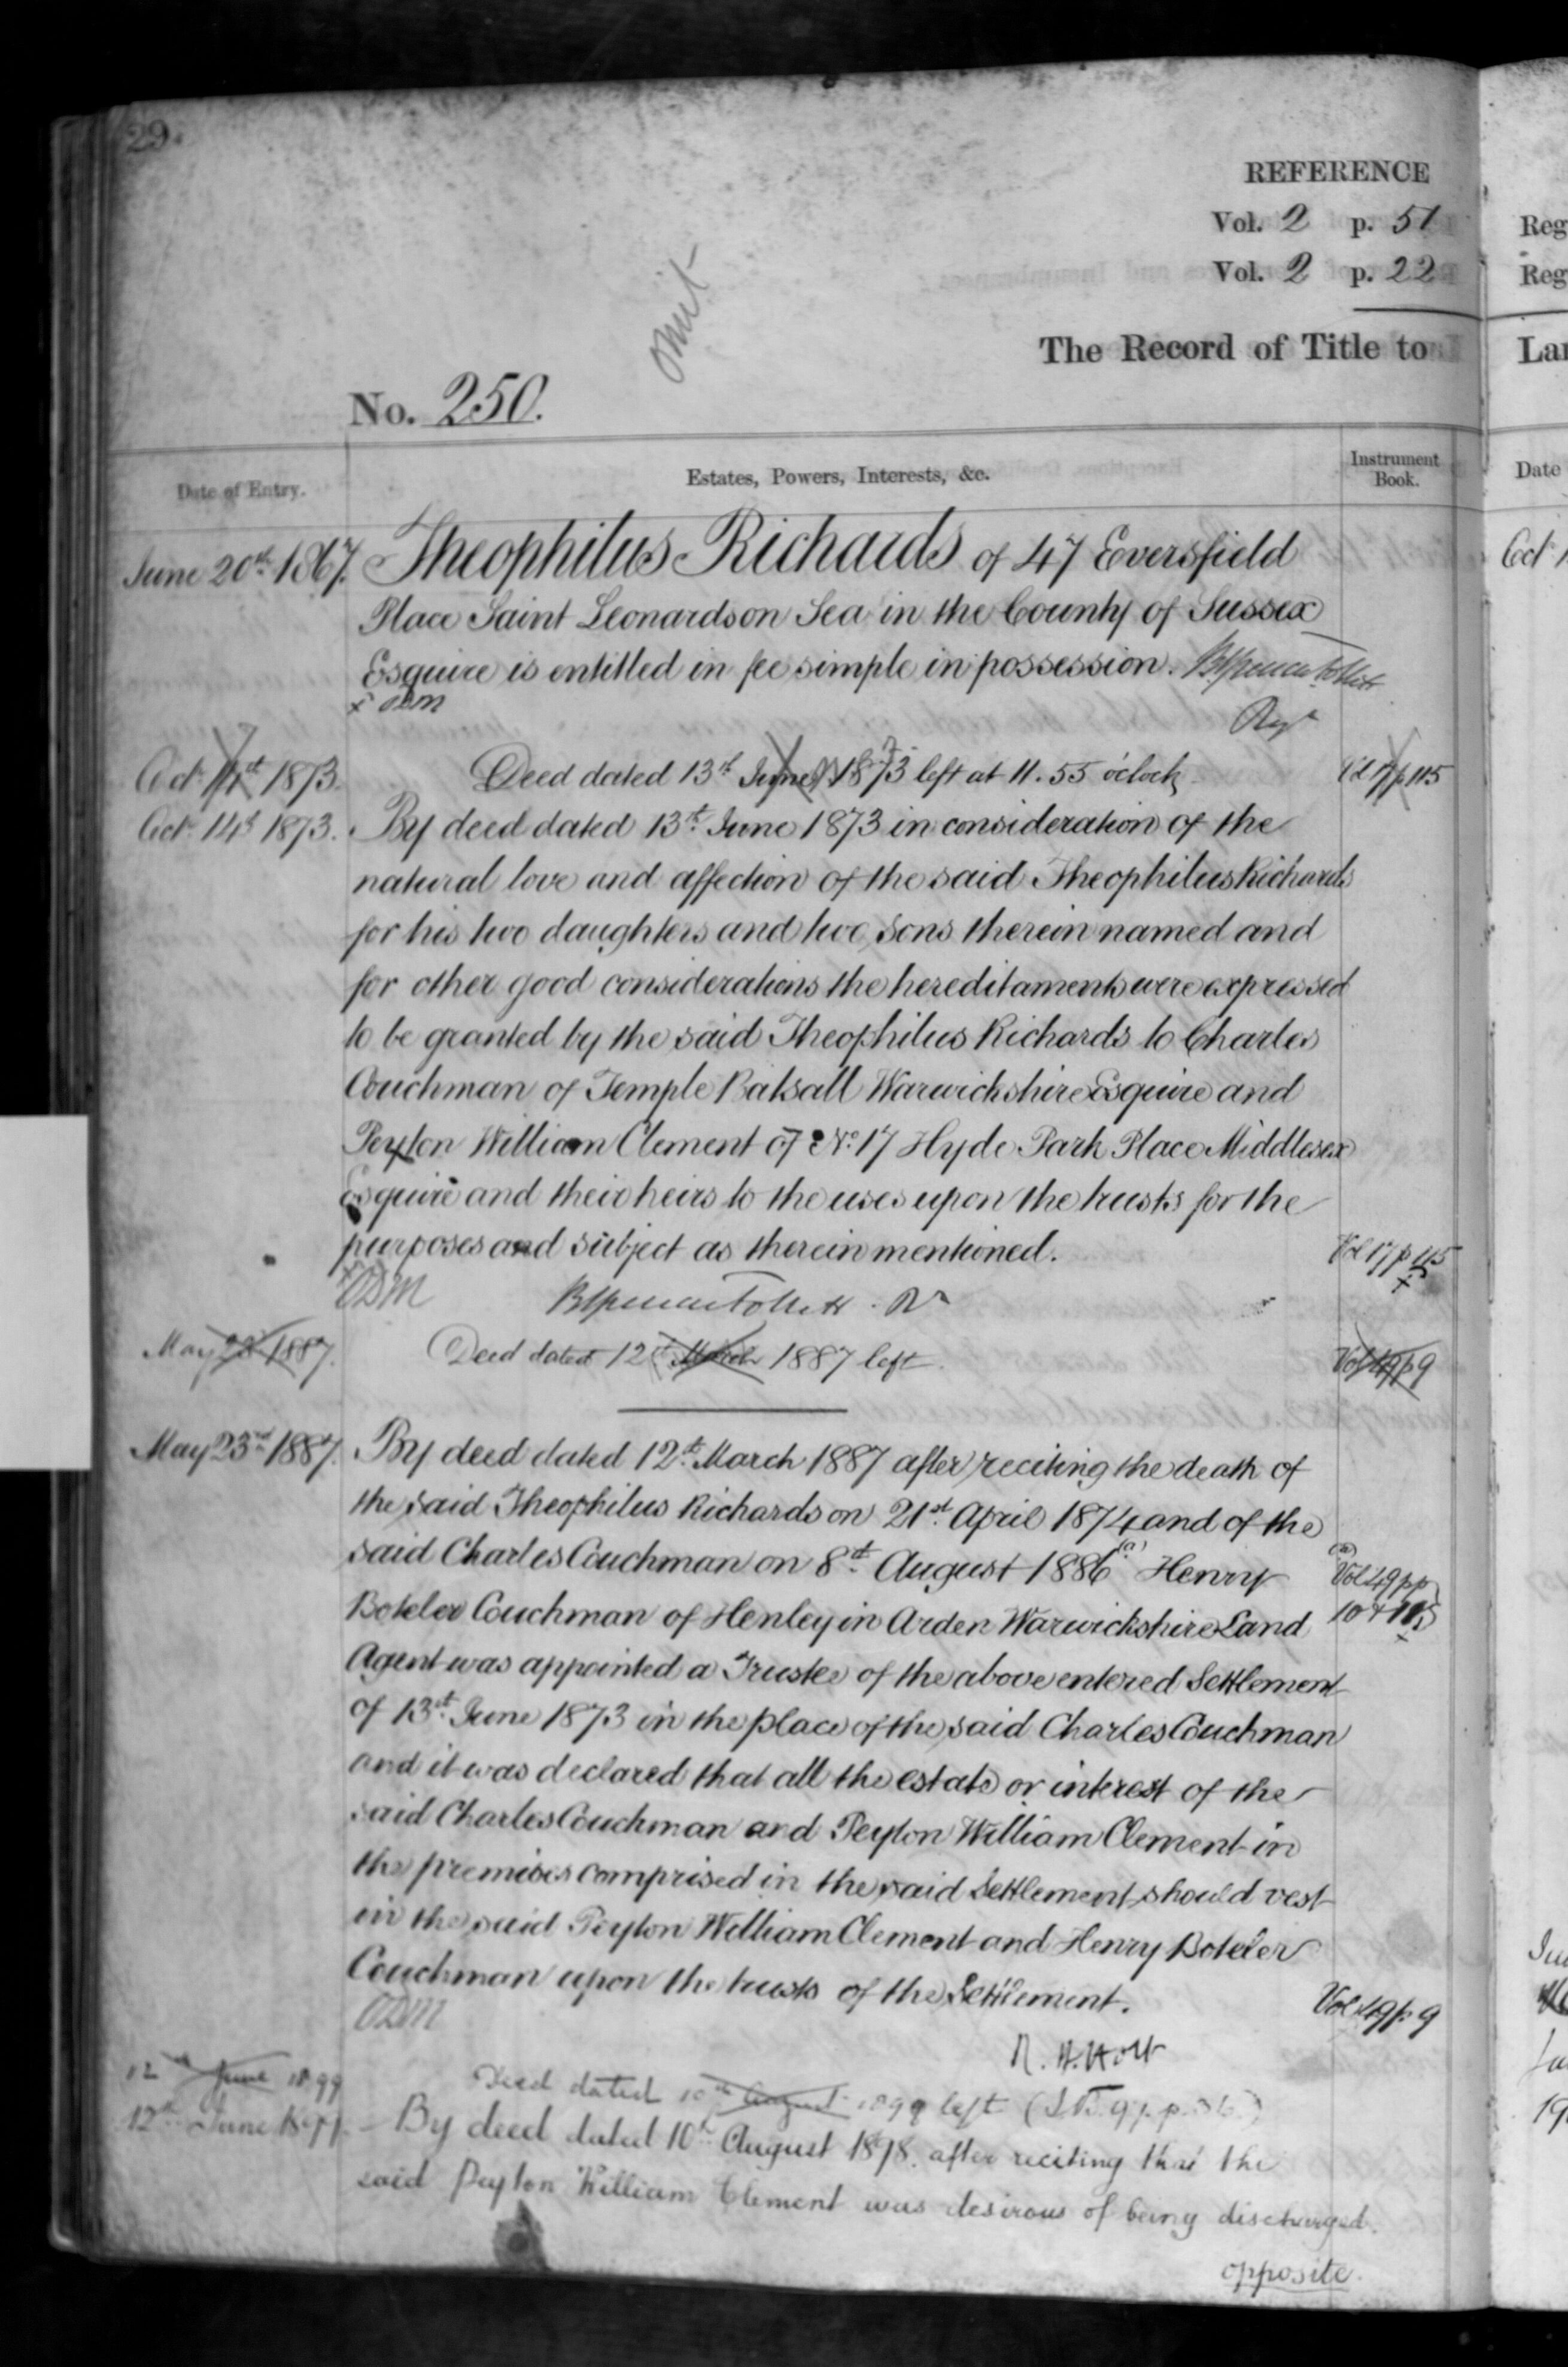 29.
REFERENCE
Vol. 2 p. 51
Vol. 2 p. 22
omit
The Record of Title to
No. 250.
Date of Entry.
Estates, Powers, Interests, &c.
Instrument Book.
June 20th 1867. Theophilus Richards of 47 Eversfield
Place Saint Leonards on Sea in the County of Sussex
Esquire is entitled in fee simple in possession. B Spencer Follett
x ODM
Regr
Oct. 14th 1873. Deed dated 13th June 1873 left at 11.55 o'clock Vol 17 p 115
Oct. 14th 1873. By deed dated 13th June 1873 in consideration of the
natural love and affection of the said Theophilus Richards
for his two daughters and two sons therein named and
for other good considerations the hereditaments were expressed
to be granted by the said Theophilus Richards to Charles
Couchman of Temple Balsall Warwickshire Esquire and
Peyton William Clement of No. 17 Hyde Park Place Middlesex
Esquire and their heirs to the uses upon the trusts for the
purposes and subject as therein mentioned. Vol 17 p 115
x
ODM B Spencer Follett. Rr
May 23rd 1887. Deed dated 12th March 1887 left. Vol 49 p 9
May 23rd 1887. By deed dated 12th March 1887 after reciting the death of
the said Theophilus Richards on 21st April 1874 and of the
said Charles Couchman on 8th August 1886 (a) Henry (a) Vol 49 pp
Boteler Couchman of Henley in Arden Warwickshire Land 10 &
x
Agent was appointed a Trustee of the above entered Settlement
of 13th June 1873 in the place of the said Charles Couchman
and it was declared that all the estate or interest of the
said Charles Couchman and Peyton William Clement in
the premises comprised in the said Settlement should vest
in the said Peyton William Clement and Henry Boteler
Couchman upon the trusts of the Settlement. Vol 49 p 9
ODM
R. H. Holt
12th June 1899 Deed dated 10th August 1899 left
12th June 1899. By deed dated 10th August 1898. after reciting that the
said Peyton William Clement was desirous of being discharged.
opposite.
Reg
Reg
Date
Oct